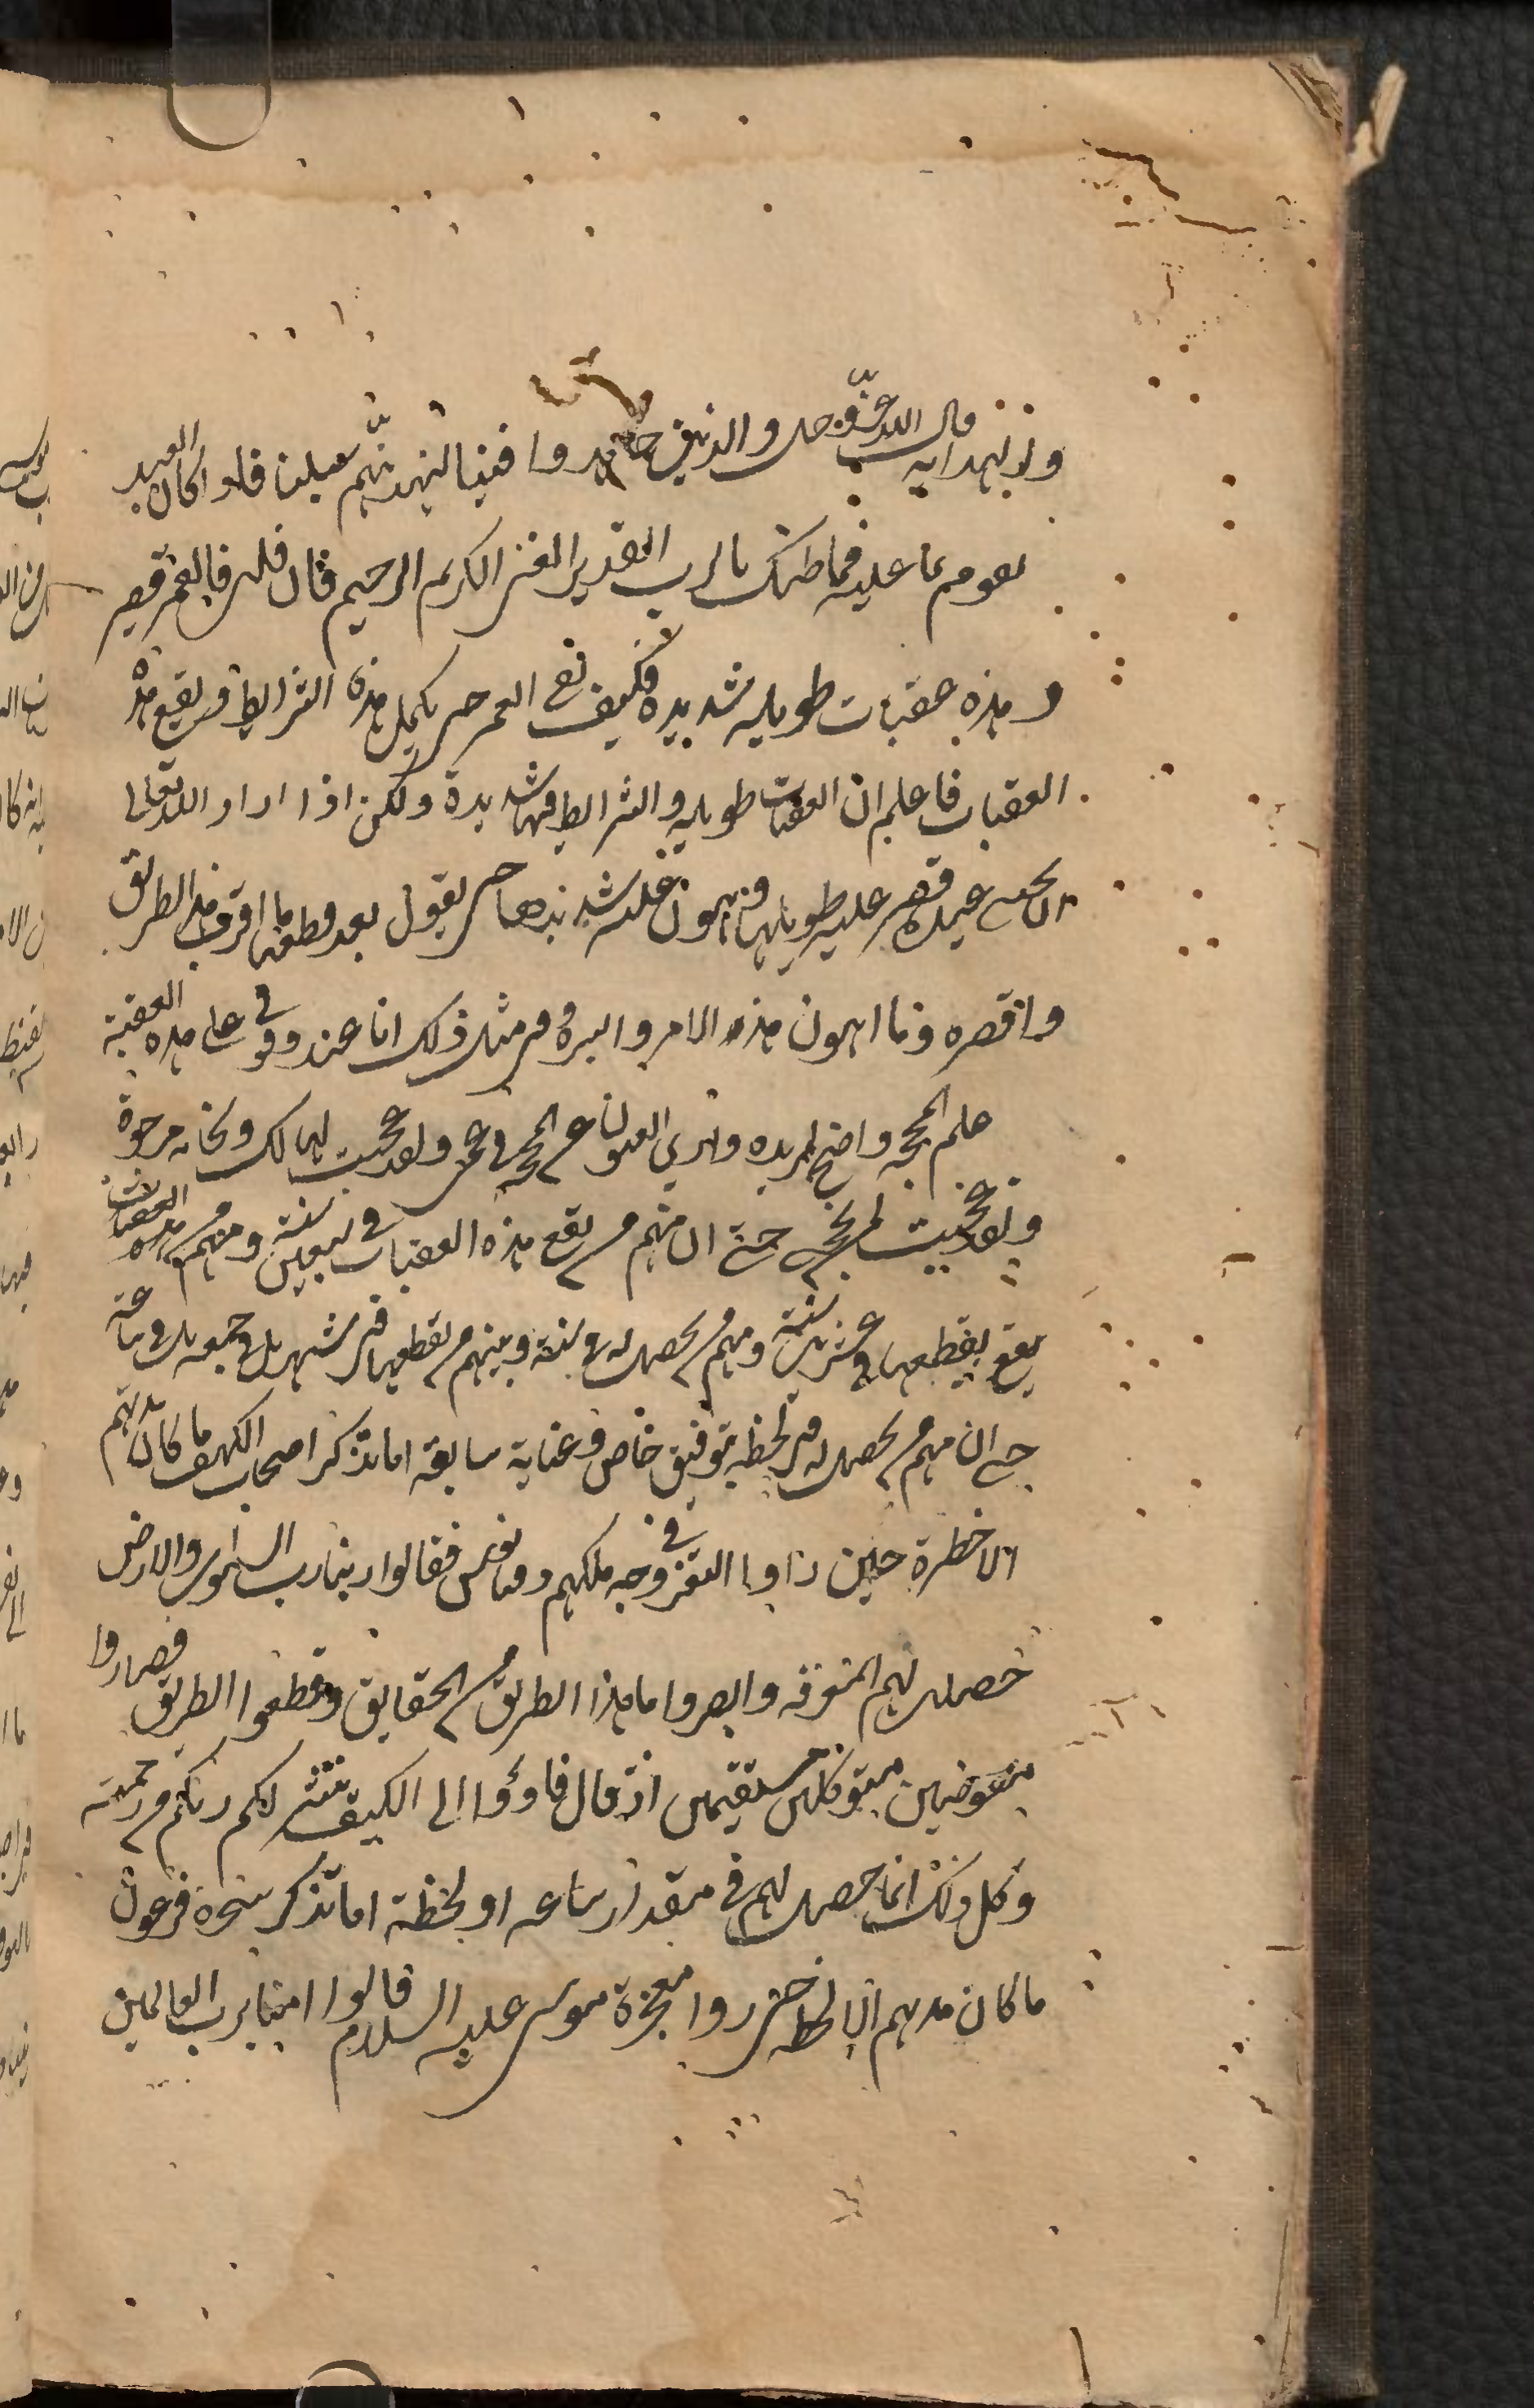 ولنهداية قال الله عز وجل والذين جاهدوا فينا لنهدينهم سبلنا فاذا كان العبد
يقوم بما عليه فما ظنك بالرب القدير الغني الكريم الرحيم فان قلت فالعمر قصير
وهذه عقبات طويلة شديدة فكيف يبقى العمر حتى يكمل هذه الشرايط ويقع هذه
العقبات فاعلم ان العقبات طويلة والشرايط فيها شديدة ولكن اذا اراد الله تعالى
ان عبده قصر عليه طويلها وهون عليه شديدها حتى يقول بعد قطعها ما اقرب هذا الطريق
واقصره وما اهون هذا الامر وايسره ومن مثل ذلك انا عند وقوفي على هذه العقبة
علم المحجة واضح لمريده وارى القلوب عن المحجة في عمى ولقد عجبت لهالك ونجاته موجودة
ولقد عجبت لمن نجى حتى ان منهم من يقع هذه العقبات في سبعين سنة ومنهم من هذه العقبات
يقع يقطعها في عشرين سنة ومنهم من يحصل له في سنة ومنهم من يقطعها في شهر بل في جمعة بل في ساعة
حتى ان منهم من يحصل له في لحظة بتوفيق خاص وعناية سابقة اما تذكر اصحاب الكهف ما كان مدتهم
الا خطرة حين راوا التغير في وجه ملكهم دقيانوس فقالوا ربنا رب السموات والارض
حصل لهم المعرفة وابصروا ما هذا الطريق من الحقايق وقطعوا الطريق فصاروا
مفوضين متوكلين مستقيمين اذ قال فاووا الى الكهف ينشر لكم ربكم من رحمته
وكل ذلك انما حصل لهم في مقدار ساعة او لحظة اما تذكر سحرة فرعون
ما كان مدتهم الا لحظة حتى راوا معجزة موسى عليه السلام قالوا امنا برب العالمين